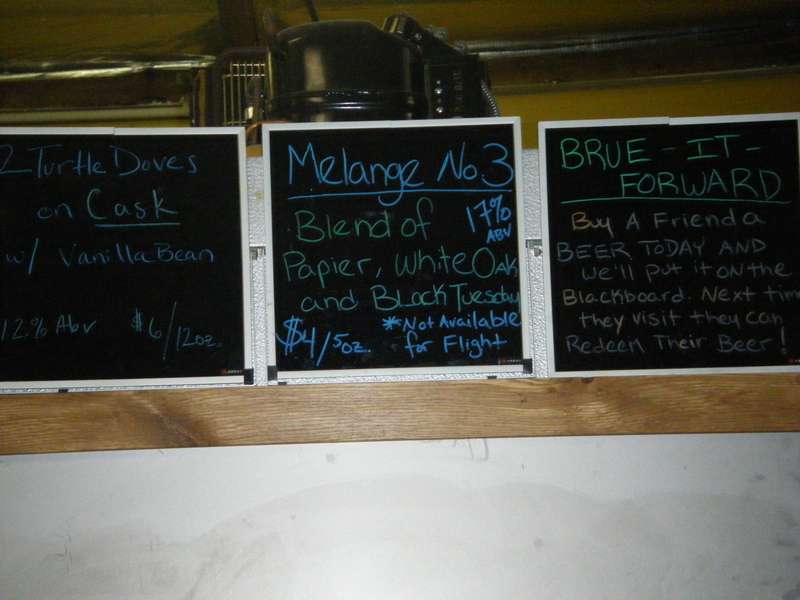 2 Turtle Doves
on Cask
w/ Vanilla Bean
12% Abv $6/12oz.
Melange No 3
Blend of 17% ABV
Papier, White Oak
and Black Tuesday
$4/5oz. *Not Available
for Flight
BRUE-IT-
FORWARD
Buy A Friend a
BEER TODAY AND
we'll put it on the
Blackboard. Next time
they visit they can
Redeem Their Beer!